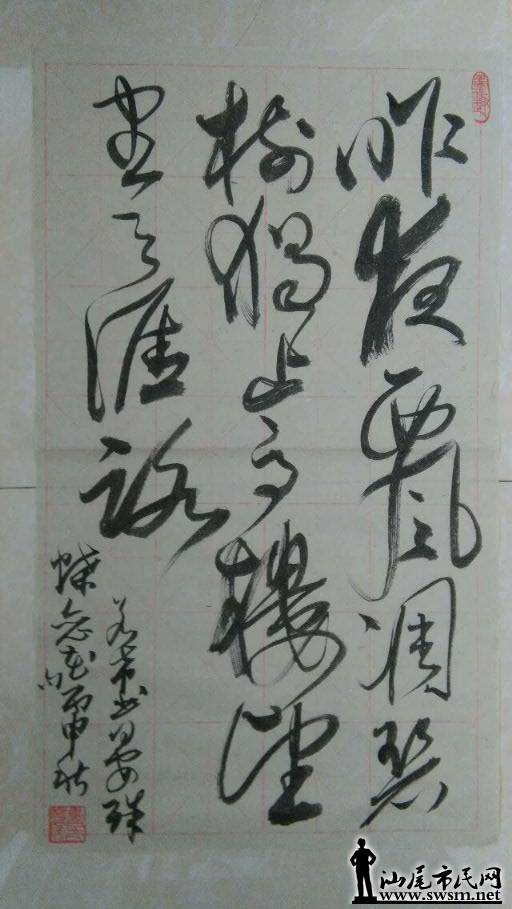 昨夜西風凋碧
樹獨上高樓望
盡天涯路
书晏殊
蝶恋花句丙申秋
汕尾市民网
www.swsm.net